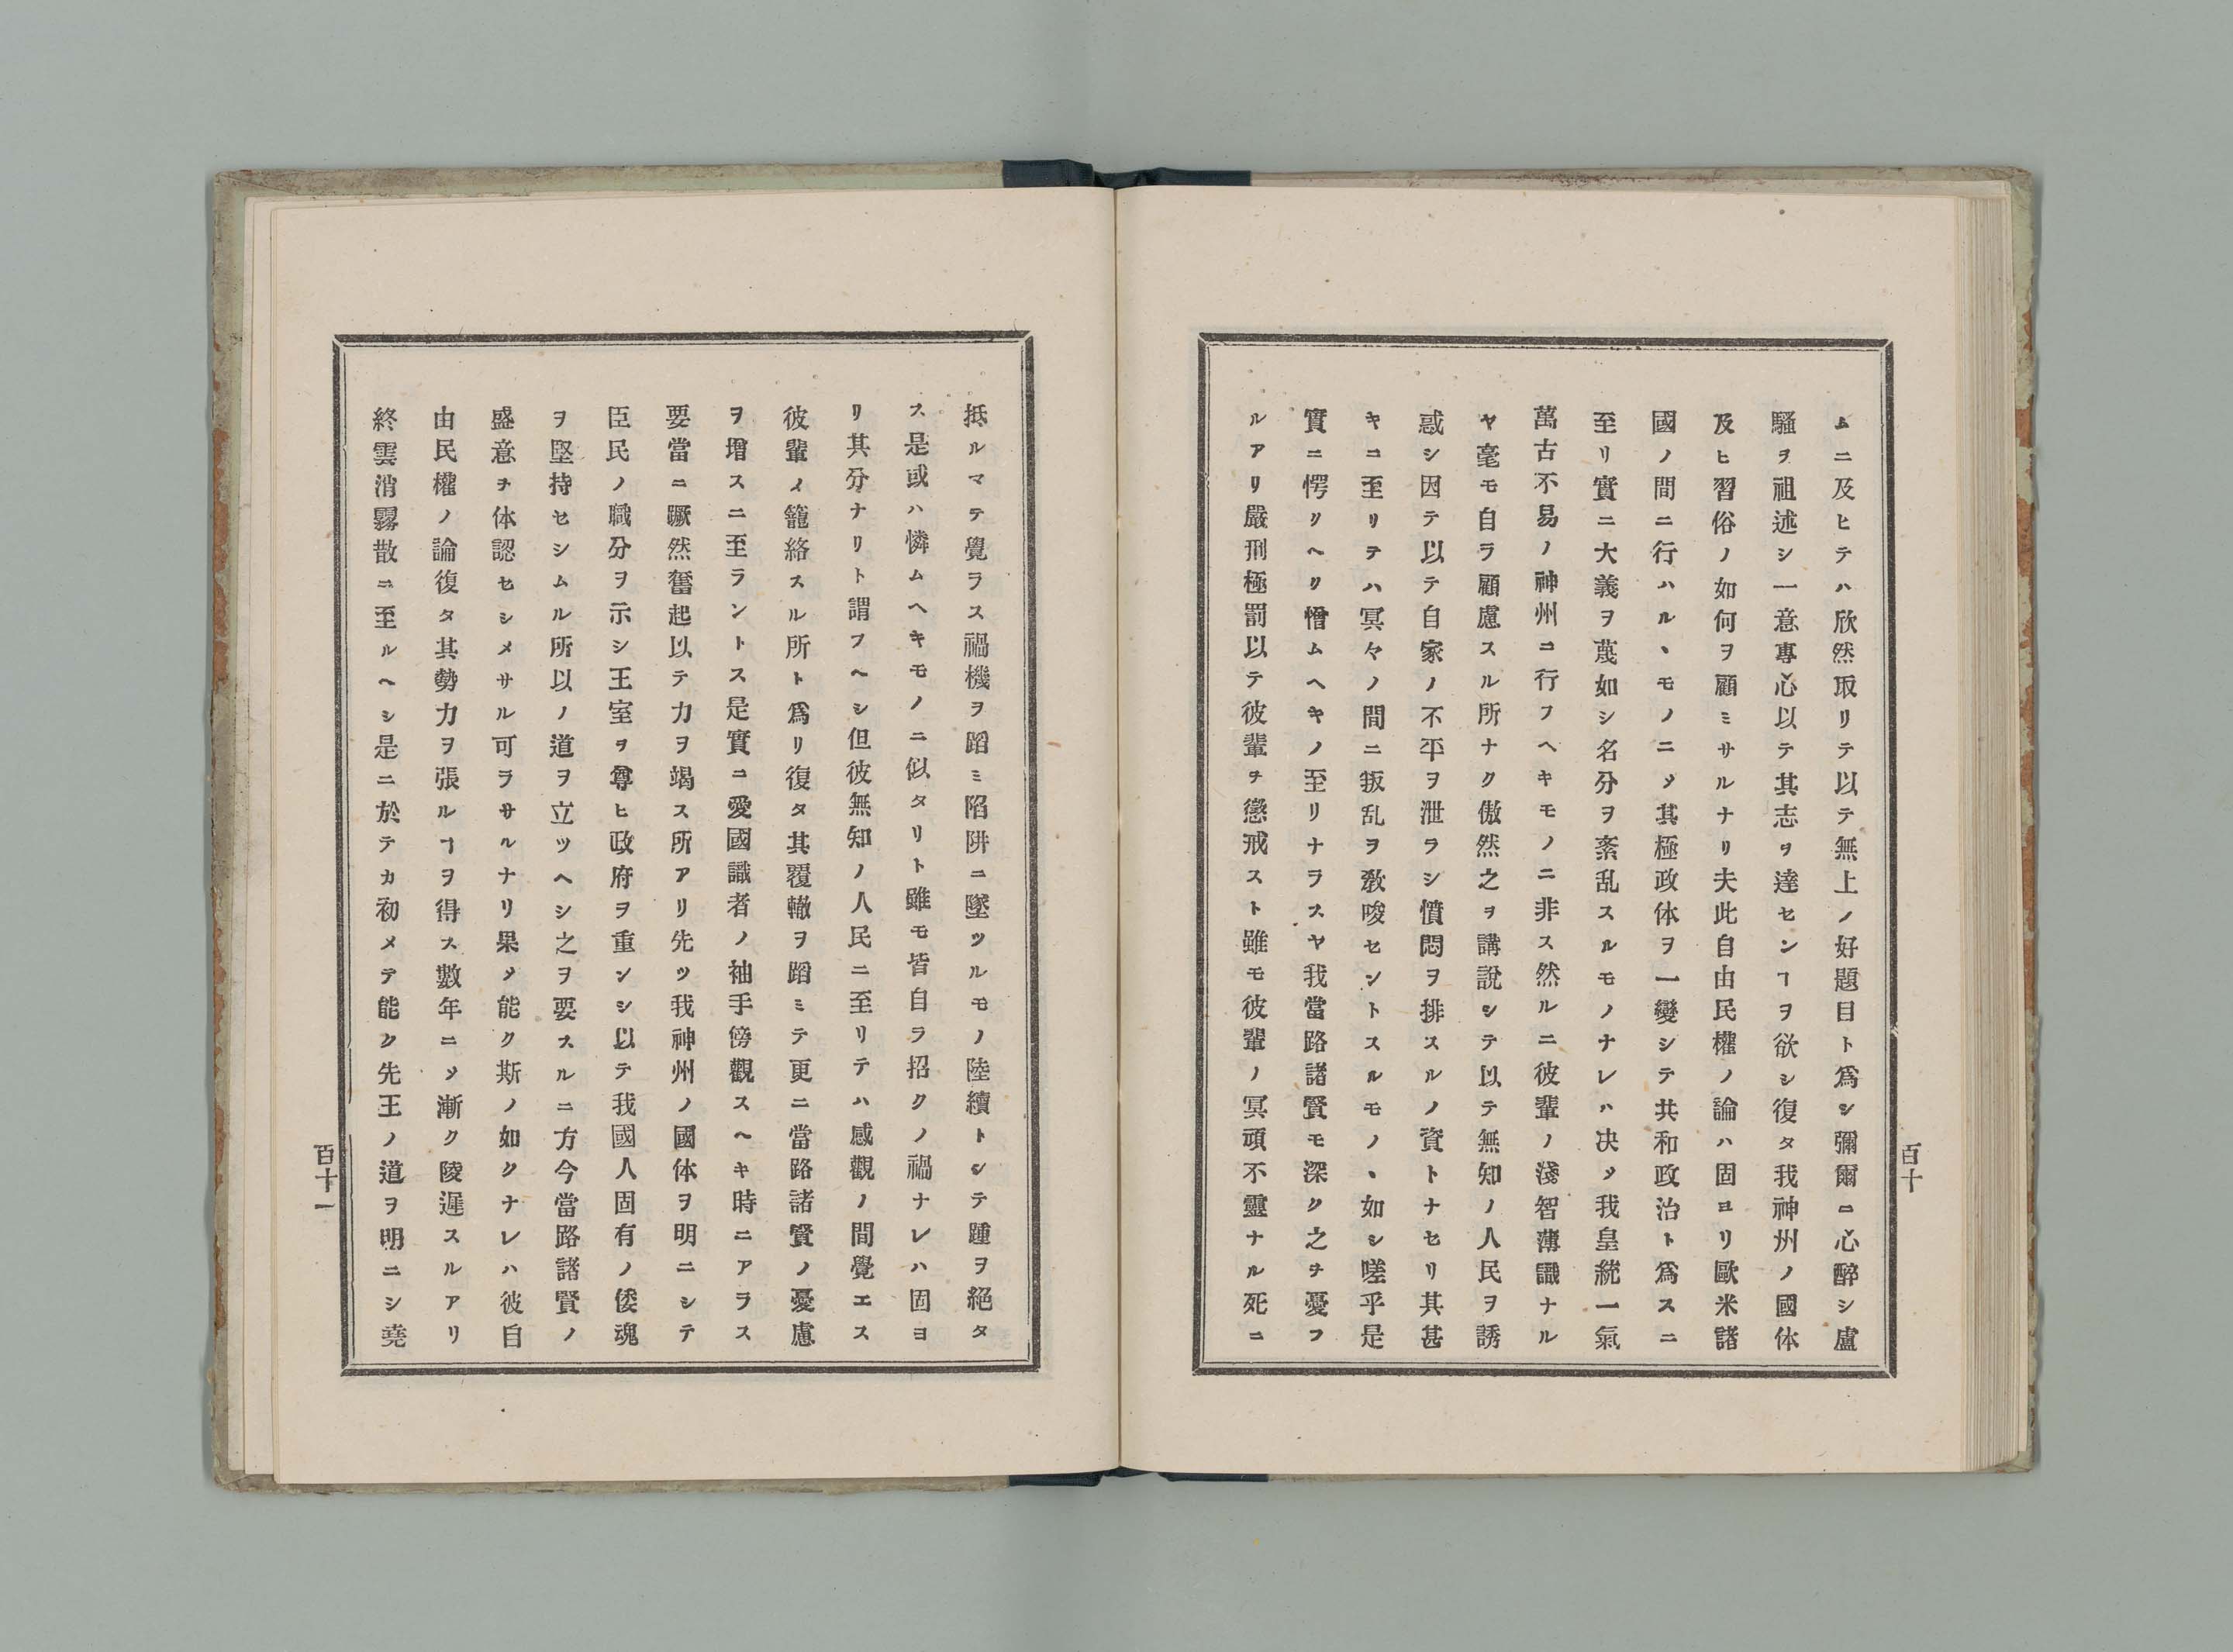 ムニ及ヒテハ欣然取リテ以テ無上ノ好題目ト爲シ彌爾ニ心醉シ盧
騷ヲ祖述シ一意專心以テ其志ヲ達センヿヲ欲シ復タ我神州ノ國体
及ヒ習俗ノ如何ヲ顧ミサルナリ夫此自由民權ノ論ハ固ヨリ歐米諸
國ノ間ニ行ハルヽモノニメ其極政体ヲ一變シテ共和政治ト爲スニ
至リ實ニ大義ヲ蔑如シ名分ヲ紊乱スルモノナレハ决メ我皇統一氣
萬古不易ノ神州ニ行フヘキモノニ非ス然ルニ彼輩ノ淺智薄識ナル
ヤ毫モ自ラ顧慮スル所ナク傲然之ヲ講說シテ以テ無知ノ人民ヲ誘
惑シ因テ以テ自家ノ不平ヲ泄ラシ憤悶ヲ排スルノ資トナセリ其甚
キニ至リテハ冥々ノ間ニ叛乱ヲ敎唆セントスルモノヽ如シ嗟乎是
實ニ愕リヘリ憎ムヘキノ至リナラスヤ我當路諸賢モ深ク之ヲ憂フ
ルアリ嚴刑極罰以テ彼輩ヲ懲戒スト雖モ彼輩ノ冥頑不靈ナル死ニ
百十
抵ルマテ覺ラス禍機ヲ蹈ミ陷阱ニ墜ツルモノ陸續トシテ踵ヲ絕タ
ス是或ハ憐ムヘキモノニ似タリト雖モ皆自ラ招クノ禍ナレハ固ヨ
リ其分ナリト謂フヘシ但彼無知ノ人民ニ至リテハ感觀ノ間覺エス
彼輩ノ籠絡スル所ト爲リ復タ其覆轍ヲ蹈ミテ更ニ當路諸賢ノ憂慮
ヲ增スニ至ラントス是實ニ愛國識者ノ袖手傍觀スヘキ時ニアラス
要當ニ蹶然奮起以テ力ヲ竭ス所アリ先ツ我神州ノ國体ヲ明ニシテ
臣民ノ職分ヲ示シ王室ヲ尊ヒ政府ヲ重ンシ以テ我國人固有ノ倭魂
ヲ堅持セシムル所以ノ道ヲ立ツヘシ之ヲ要スルニ方今當路諸賢ノ
盛意ヲ体認セシメサル可ラサルナリ果メ能ク斯ノ如クナレハ彼自
由民權ノ論復タ其勢力ヲ張ルヿヲ得ス數年ニメ漸ク陵遲スルアリ
終雲消霧散ニ至ルヘシ是ニ於テカ初メテ能ク先王ノ道ヲ明ニシ堯
百十一